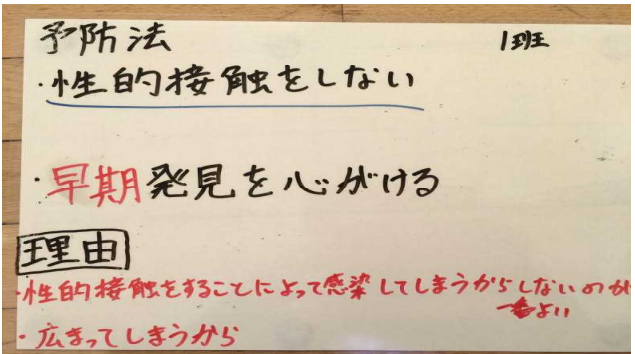 予防法 1班
・性的接触をしない
・早期発見を心がける
理由
・性的接触をすることによって感染してしまうからしないのが
よい
・広まってしまうから